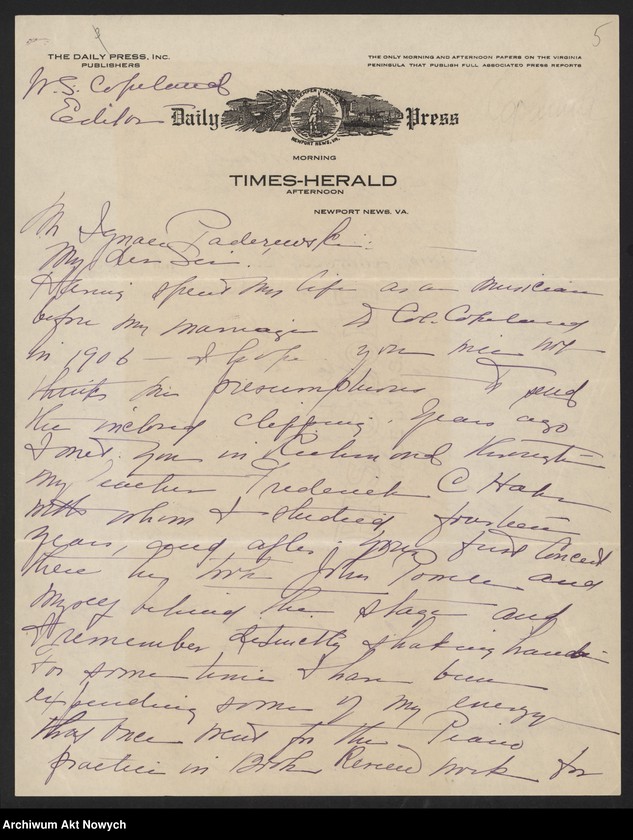 5
THE DAILY PRESS, INC.
PUBLISHERS
THE ONLY MORNING AND AFTERNOON PAPERS ON THE VIRGINIA
PENINSULA THAT PUBLISH FULL ASSOCIATED PRESS REPORTS
W. S. Copeland
Editor
Daily Press
NEWPORT NEWS, VA.
MORNING
TIMES-HERALD
AFTERNOON
NEWPORT NEWS, VA.
Mr Ignace Paderewski:
My dear Sir:
Having spent my life as a musician
before my marriage to Col. Copeland
in 1906 — I hope you will not
think me presumptuous to send
the inclosed clipping. Years ago
I met you in Richmond through
my teacher Frederick C Hahr
with whom I studied fourteen
years, and after your first Concert
there he took John Powell and
myself behind the stage and
I remember distinctly shaking hands
For some time I have been
expending some of my energy
that once went for the Piano
practice in Book Review work for
Archiwum Akt Nowych